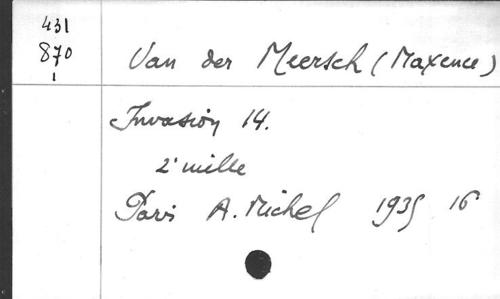 431
870
1
Van der Meersch (Maxence)
Invasion 14.
2e mille
Paris A. Michel 1935 16